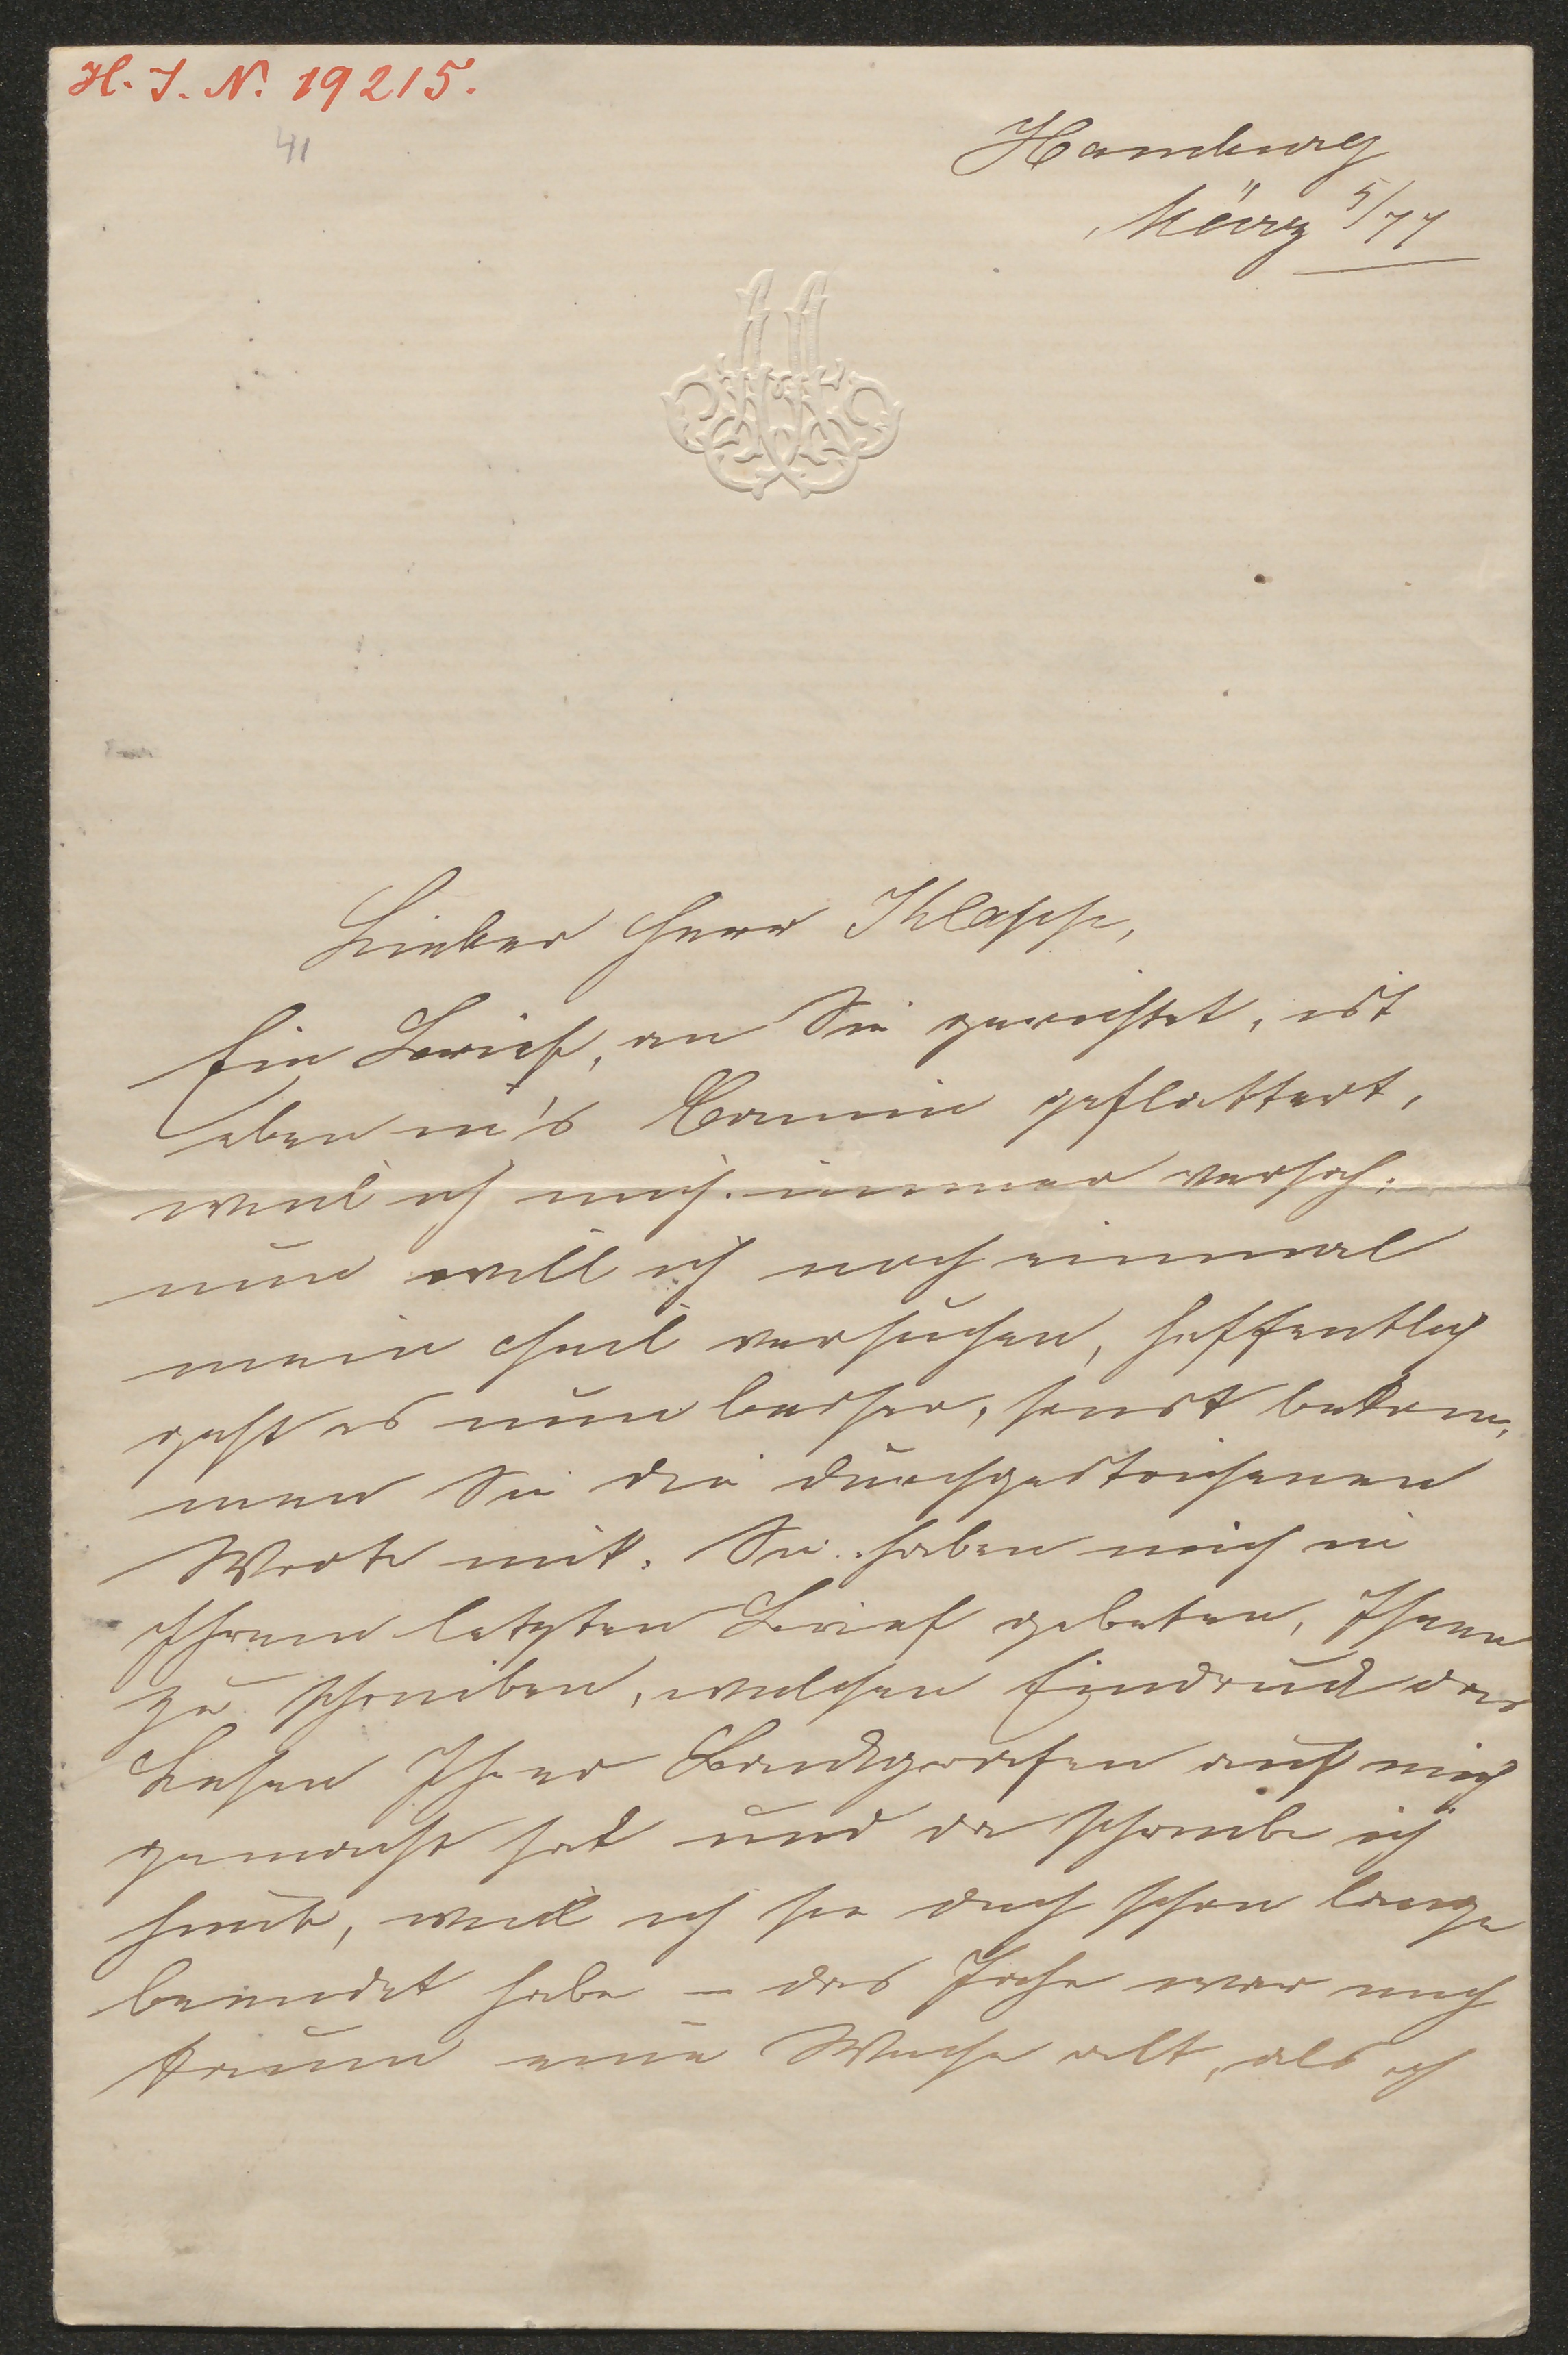 H. I. N. 19215.
41
Hamburg
März 5/77
Lieber Herr Klapp,
Ein Brief, an Sie gerichtet, ist
eben in's Camin geflattert,
weil ich mich immer versah;
nun will ich noch einmal
mein Heil versuchen, hoffentlich
geht es nun besser, sonst bekom-
men Sie die durchgestrichenen
Worte mit. Sie haben mich in
Ihrem letzten Brief gebeten, Ihnen
zu schreiben, welchen Eindruck das
Lesen Ihrer auf mich
gemacht hat und da schreibe ich
heute, weil ich sie doch schon lange
beendet habe – das Jahr war noch
kaum eine Woche alt, als ich